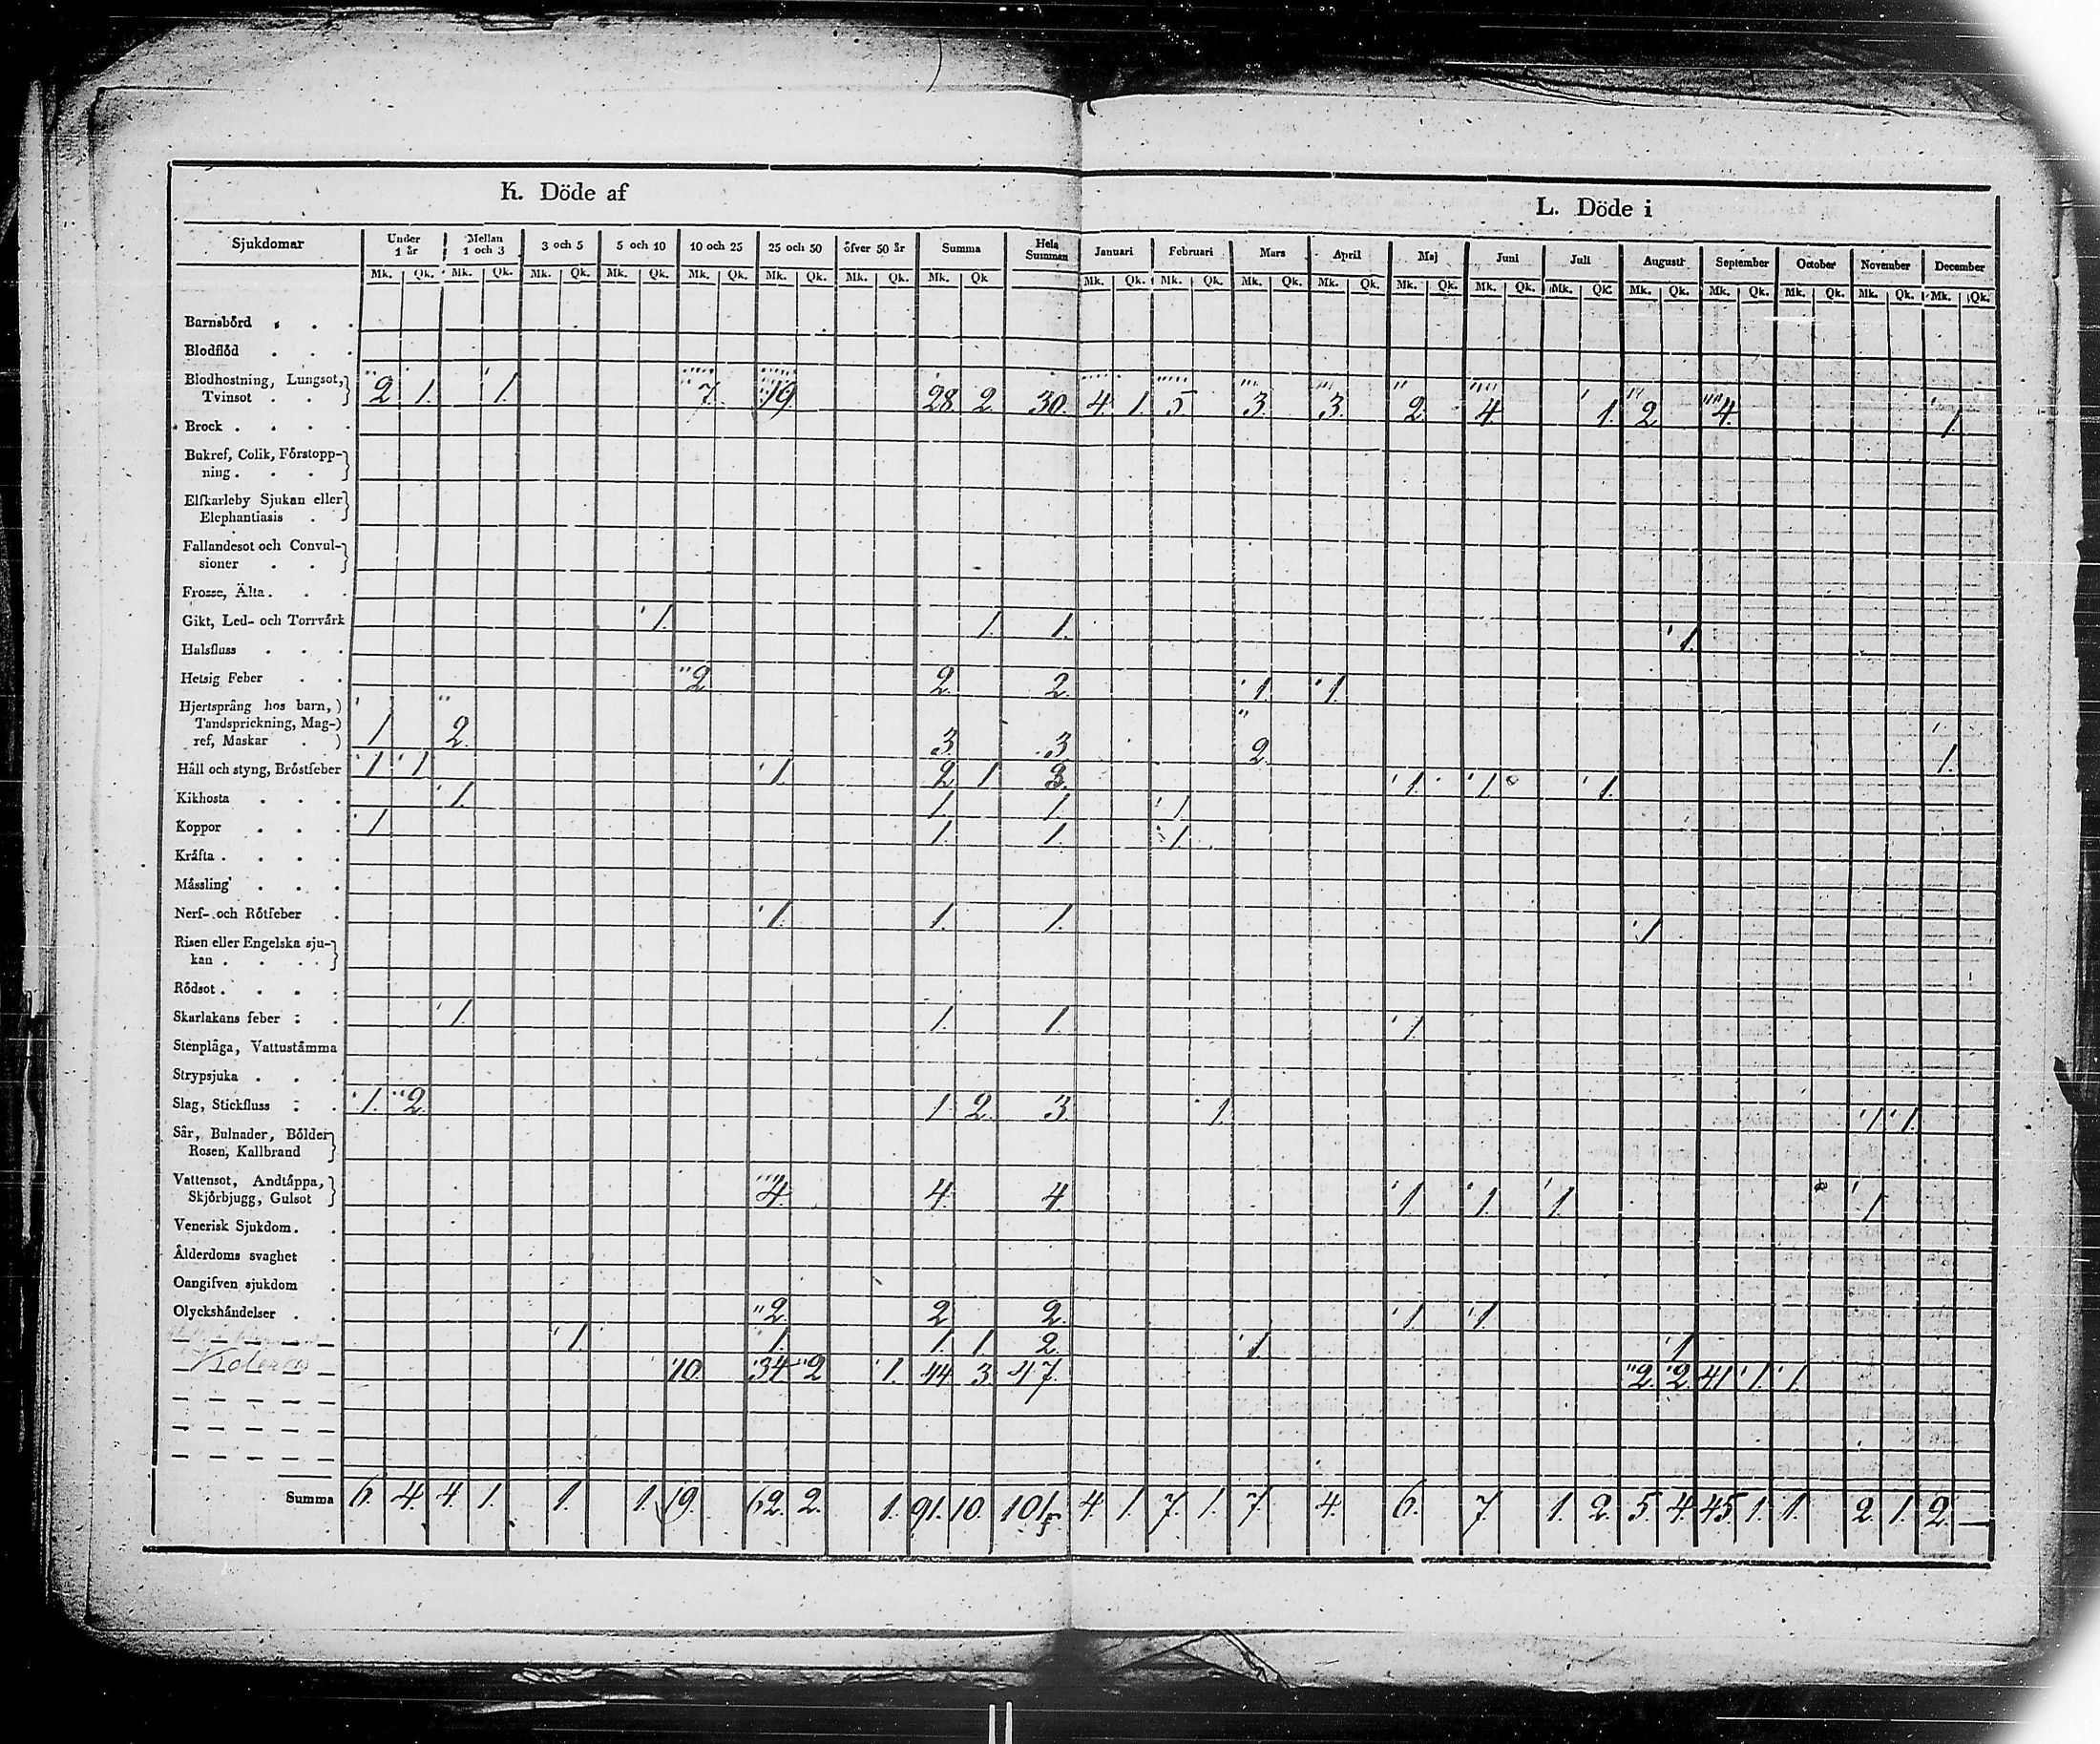 K. Döde af
L. Döde i
Sjukdomar Under 1 år Mellan 1 och 3 3 och 5 5 och 10 10 och 25 25 och 50 öfver 50 år Summa Hela Summan Januari Februari Mars April Maj Juni Juli Augusti September October November December
Mk. Qk. Mk. Qk. Mk. Qk. Mk. Qk. Mk. Qk. Mk. Qk. Mk. Qk. Mk. Qk Mk. Qk. Mk. Qk. Mk. Qk. Mk. Qk. Mk. Qk. Mk. Qk. Mk. Qk. Mk. Qk. Mk. Qk. Mk. Qk. Mk. Qk. Mk. Qk.
Barnsbörd
Blodflöd
Blodhostning, Lungsot,
Tvinsot 2 1. 1. 7. 19 28 2 30. 4. 1. 5 3. 3. 2. 4. 1. 2 4. 1.
Brock
Bukref, Colik, Förstopp-
ning
Elfkarleby Sjukan eller
Elephantiasis
Fallandesot och Convul-
sioner
Frosse, Älta
Gikt, Led- och Torrvärk 1. 1. 1. 1.
Halsfluss
Hetsig Feber 2 2 2. 1 1.
Hjertsprång hos barn,
Tandsprickning, Mag-
ref, Maskar 1 2. 3. 3 2 1.
Håll och styng, Bröstfeber 1 1 1. 2 1 3. 1. 1. 1.
Kikhosta 1. 1. 1. 1
Koppor 1 1. 1. 1.
Kräfta
Mässling
Nerf- och Rötfeber 1. 1. 1. 1
Risen eller Engelska sju-
kan
Rödsot
Skarlakans feber 1. 1. 1. 1.
Stenplåga, Vattustämma
Strypsjuka
Slag, Stickfluss 1. 2 1 2. 3. 1. 1 1.
Sår, Bulnader, Bölder
Rosen, Kallbrand
Vattensot, Andtäppa,
Skjörbjugg, Gulsot 4. 4. 4 1 1. 1. 1.
Venerisk Sjukdom
Ålderdoms svaghet
Oangifven sjukdom
Olyckshändelser 2. 2 2. 1. 1.
1. 1. 1. 1 2. 1. 1
Kolera 10. 34 2 1. 44 3. 47. 2. 2. 41 1. 1.
Summa 6. 4. 4. 1. 1. 1. 19. 62. 2. 1. 91. 10. 101. 4. 1. 7. 1. 7. 4. 6. 7. 1. 2. 5. 4. 45. 1. 1. 2. 1. 2. —